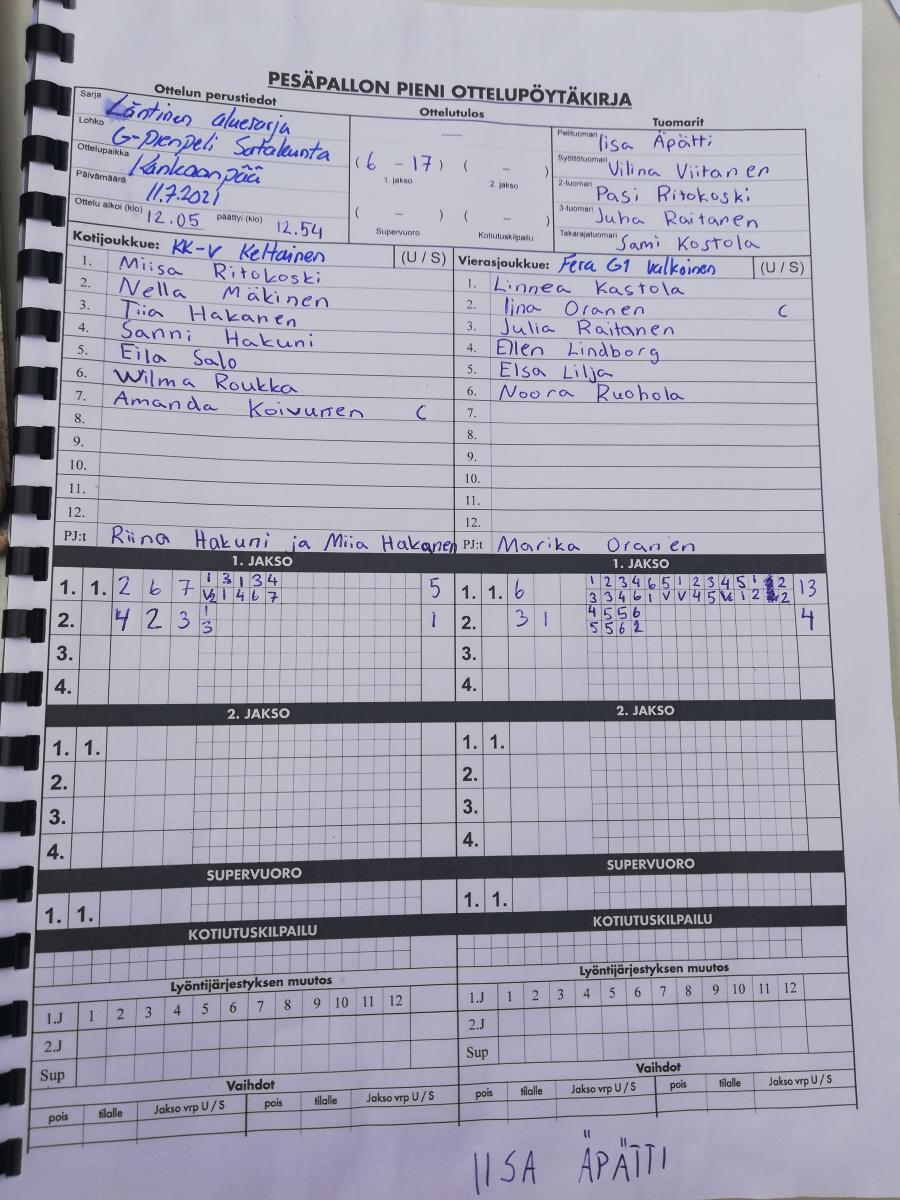 PESÄPALLON PIENI OTTELUPÖYTÄKIRJA
Ottelun perustiedot
Sarja Läntinen aluesarja
Lohko G-pienpeli Satakunta
Ottelupaikka Kankaanpää
Päivämäärä 11.7.2021
Ottelu alkoi (klo) 12.05 päättyi (klo) 12.54
Ottelutulos
( 6 - 17 ) ( - )
1. jakso 2. jakso
( - ) ( - )
Supervuoro Kotiutuskilpailu
Tuomarit
Pelituomari Iisa Äpätti
Syöttötuomari Vilina Viitanen
2-tuomari Pasi Ritokoski
3-tuomari Juha Raitanen
Takarajatuomari Sami Kostola
Kotijoukkue: KK-V Keltainen (U / S)
1. Miisa Ritokoski
2. Nella Mäkinen
3. Tiia Hakanen
4. Sanni Hakuni
5. Eila Salo
6. Wilma Roukka
7. Amanda Koivunen C
8.
9.
10.
11.
12.
PJ:t Riina Hakuni ja Miia Hakanen
Vierasjoukkue: Fera G1 Valkoinen (U / S)
1. Linnea Kastola
2. Iina Oranen C
3. Julia Raitanen
4. Ellen Lindborg
5. Elsa Lilja
6. Noora Ruohola
7.
8.
9.
10.
11.
12.
PJ:t Marika Oranen
1. JAKSO
1. 1. 2 6 7 1 3 1 3 4 5
V2 1 4 6 7
2. 4 2 3 1 1
3
3.
4.
1. JAKSO
1. 1. 6 1 2 3 4 6 5 1 2 3 4 5 1 2 13
3 3 4 6 1 V V 4 5 V6 1 2 2
2. 3 1 4 5 5 6 4
5 5 6 2
3.
4.
2. JAKSO
1. 1.
2.
3.
4.
2. JAKSO
1. 1.
2.
3.
4.
SUPERVUORO
1. 1.
SUPERVUORO
1. 1.
KOTIUTUSKILPAILU
KOTIUTUSKILPAILU
Lyöntijärjestyksen muutos
1.J 1 2 3 4 5 6 7 8 9 10 11 12
2.J
Sup
Lyöntijärjestyksen muutos
1.J 1 2 3 4 5 6 7 8 9 10 11 12
2.J
Sup
Vaihdot
pois tilalle Jakso vrp U / S pois tilalle Jakso vrp U / S
Vaihdot
pois tilalle Jakso vrp U / S pois tilalle Jakso vrp U / S
IISA ÄPÄTTI